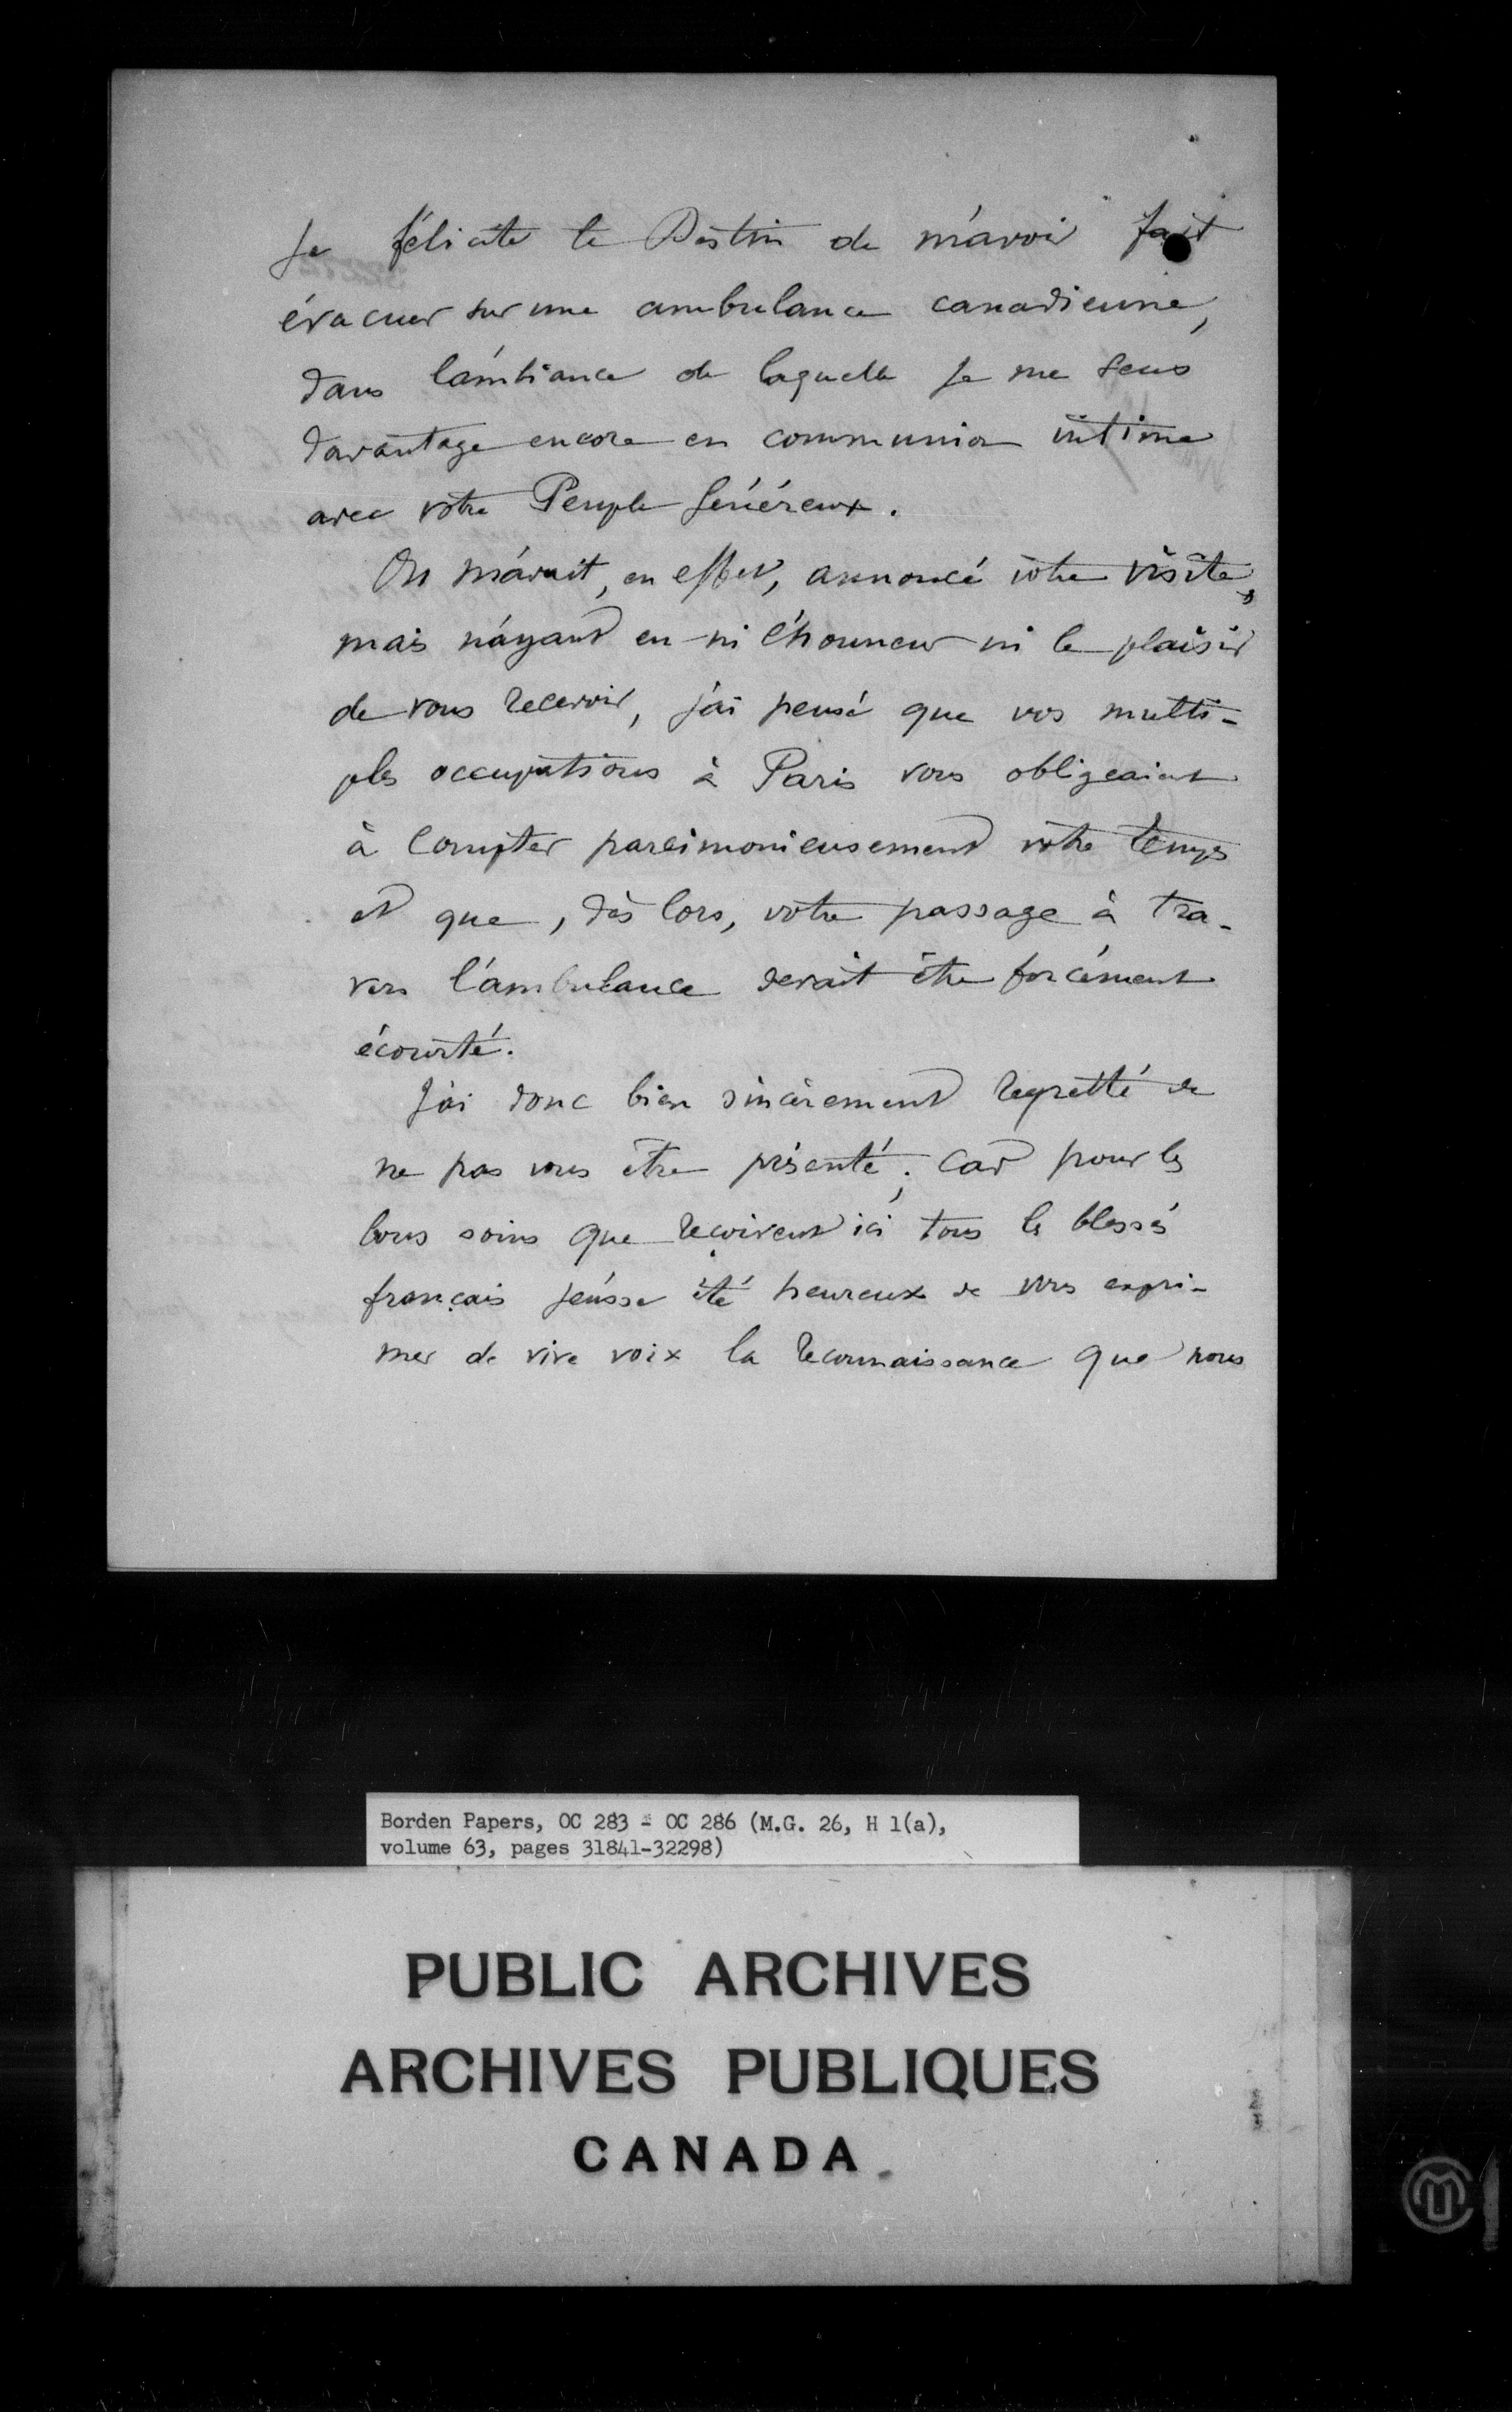 Je félicite le Destin de m'avoir fait
évacuer sur une ambulance canadienne,
dans l'ambiance de laquelle je me sens
davantage encore en communion intime
avec votre Peuple Généreux.
On m'avait, en effet, annoncé votre visite,
mais n'ayant eu ni l'honneur ni le plaisir
de vous recevoir, j'ai pensé que vos multi-
ples occupations à Paris vous obligeaient
à compter parcimonieusement votre temps
et que, dès lors, votre passage à tra-
vers l'ambulance devait être forcément
écourté.
J'ai donc bien sincèrement regretté de
ne pas vous être présenté; car pour les
bons soins que reçoivent ici tous les blessés
français j'eusse été heureux de vous expri-
mer de vive voix la reconnaissance que nous
Borden Papers, OC 283 - OC 286 (M.G. 26, H 1(a),
volume 63, pages 31841-32298)
PUBLIC ARCHIVES
ARCHIVES PUBLIQUES
CANADA